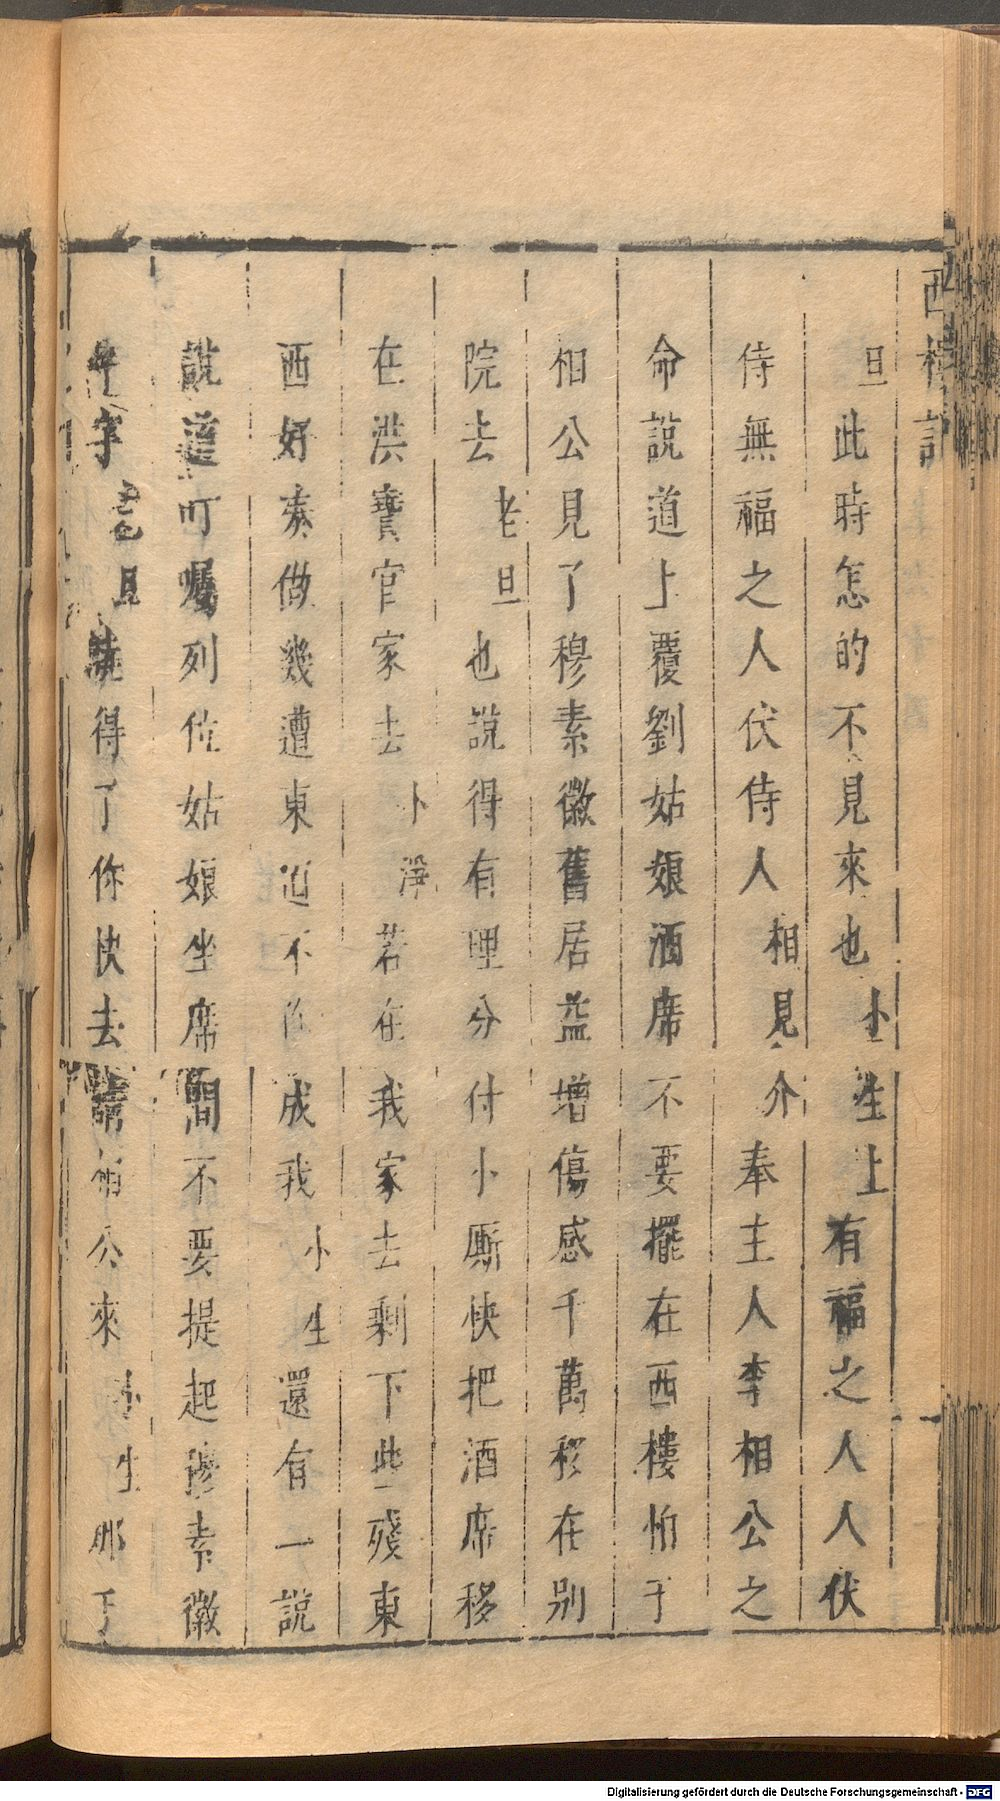 西樓記
旦此時怎的不見來也小生上有福之人人伏
侍無福之人伏侍人相見介奉主人李相公之
命說道上覆劉姑娘酒席不要擺在西樓怕于
相公見了穆素徽舊居益增傷感千萬移在別
院去老旦也說得有理分付小厮快把酒席移
在洪寶官家去卜淨若在我家去剩下些殘東
西好奏做幾遭東道不作成我小生還有一說
說道叮囑列位姑娘坐席間不要提起穆素徽
字老旦曉得了你快去請相公來小生那了
Digitalisierung gefördert durch die Deutsche Forschungsgemeinschaft - DFG